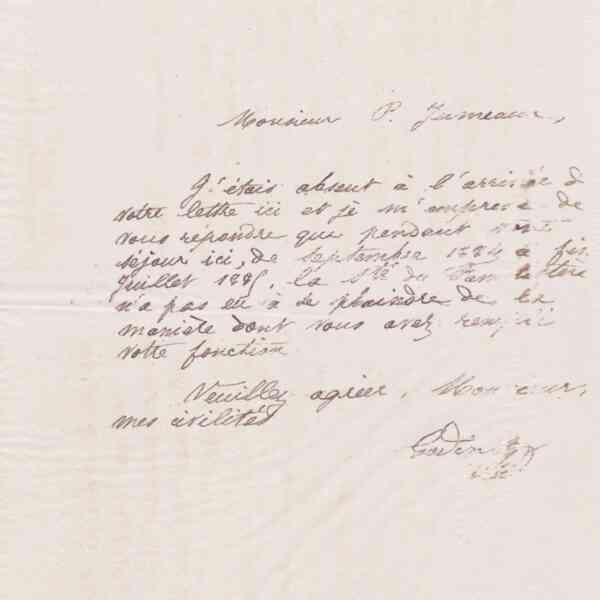 Monsieur P. Jumeaux,
J'étais absent à l'arrivée d
votre lettre ici et je m'empresse de
vous répondre que pendant votre
séjour ici, de septembre 1884 à fin
juillet 1885, la Sté du Familistère
n'a pas eu à se plaindre de la
manière dont vous avez rempli
votre fonction
Veuillez agréer, Monsieur,
mes civilités
Godin